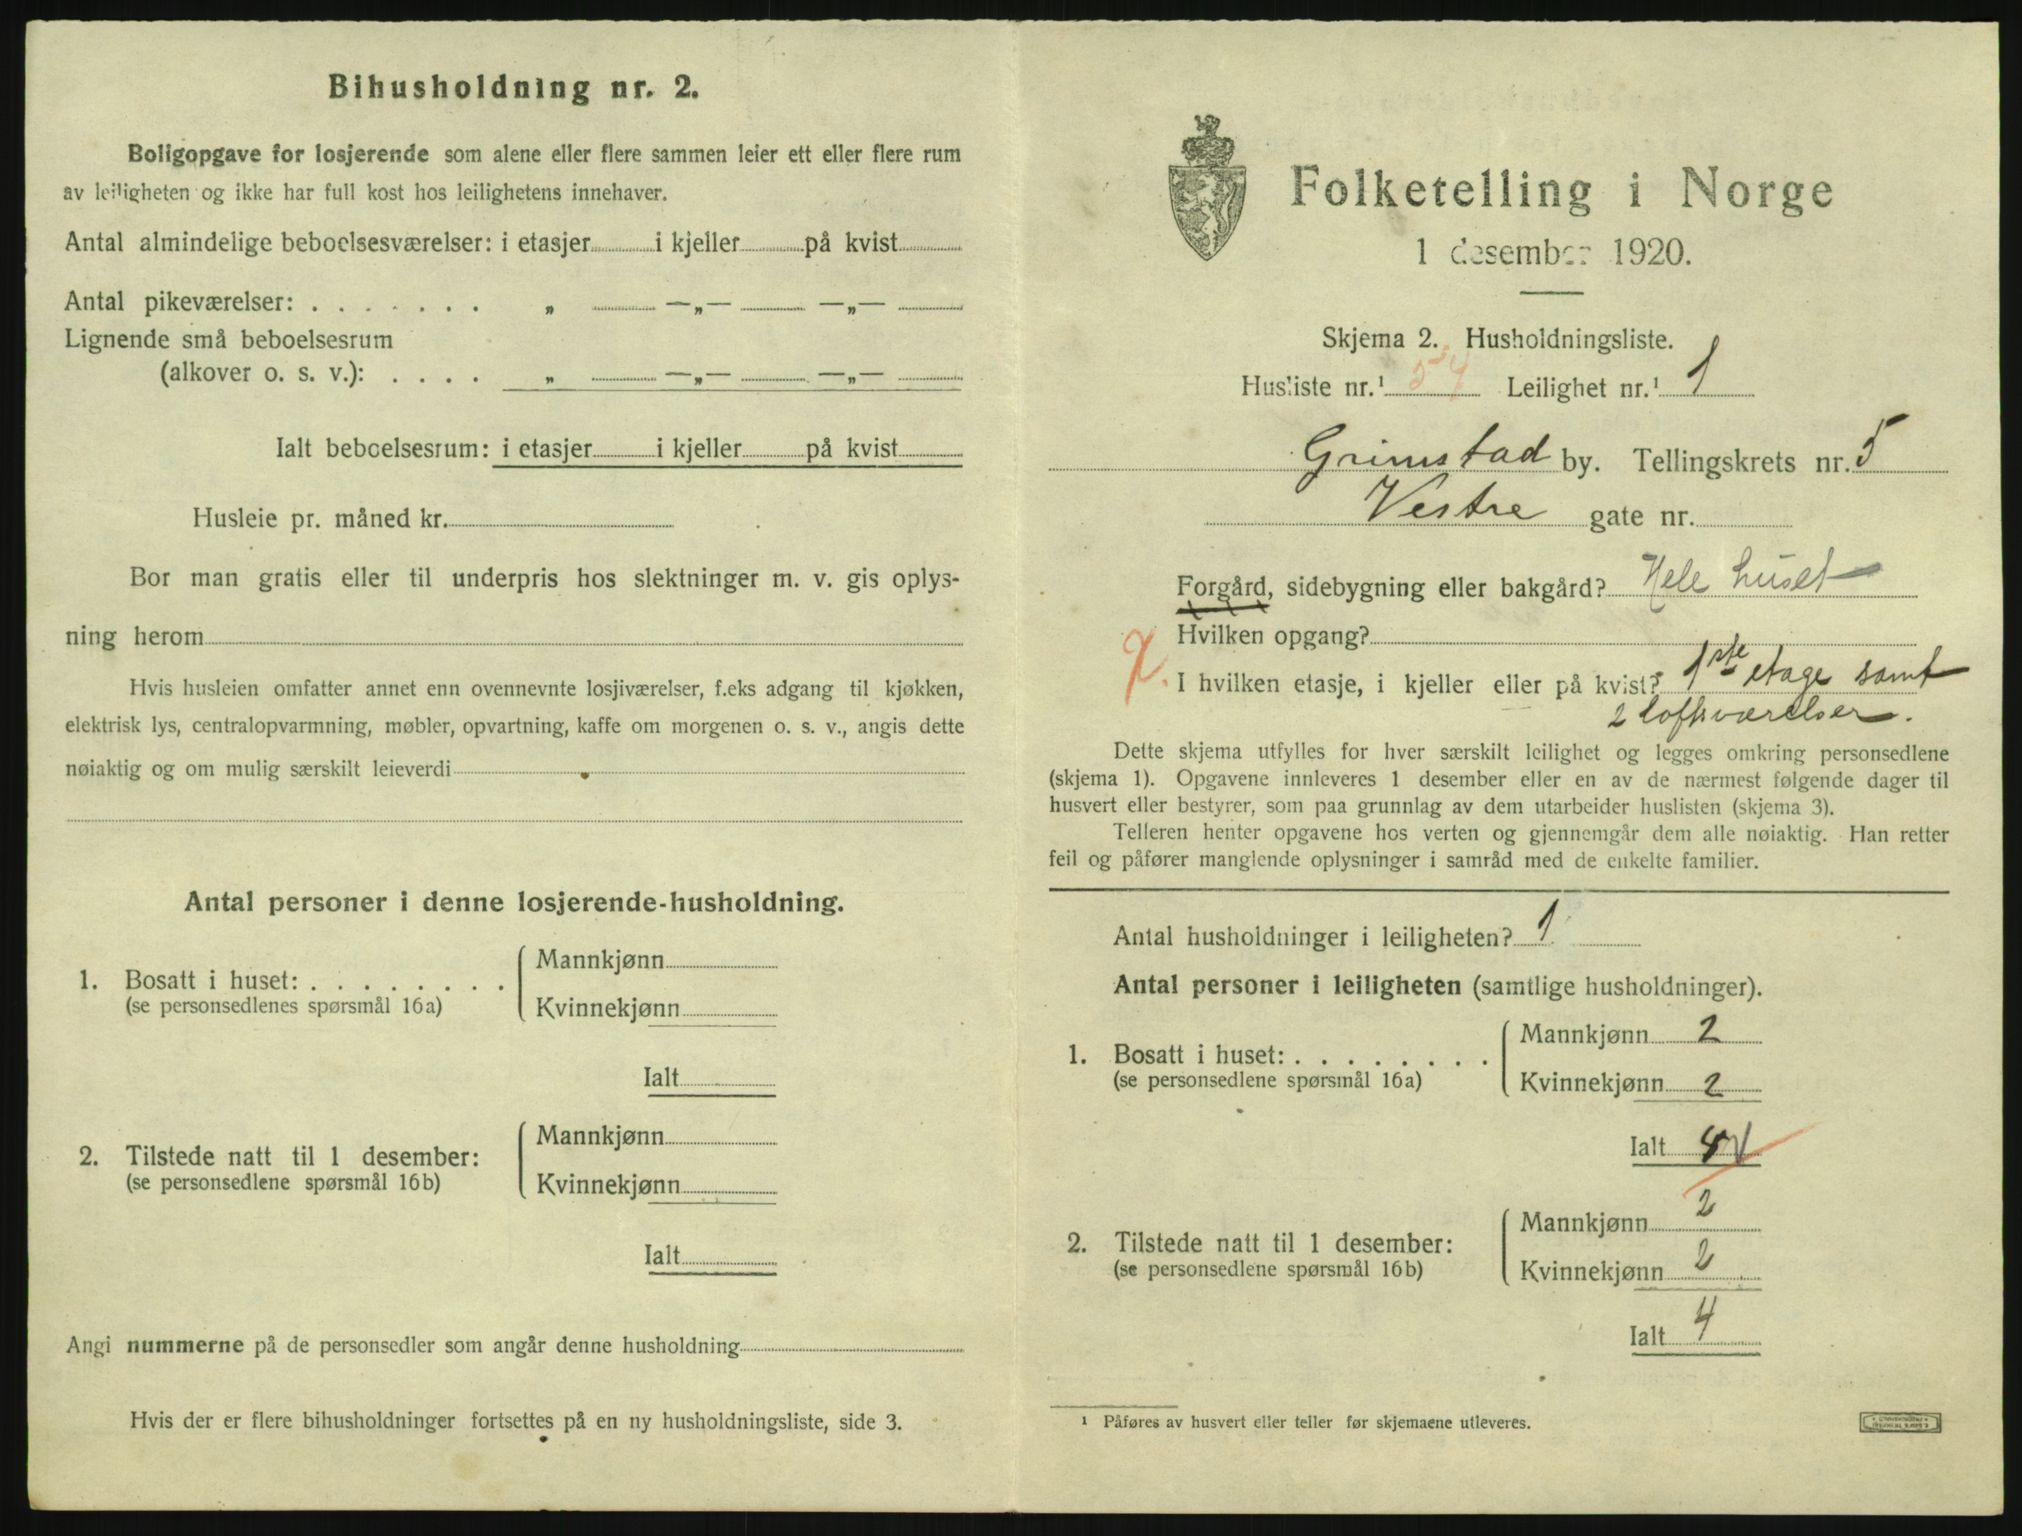 Bihusholdning nr. 2.
Boligopgave for losjerende som alene eller flere sammen leier ett eller flere rum
av leiligheten og ikke har full kost hos leilighetens innehaver.
Antal almindelige beboelsesværelser: i etasjer i kjeller på kvist
Antal pikeværelser: . . . . . . . „ —„— —„—
Lignende små beboelsesrum
(alkover o. s. v.): . . . . „ —„— —„—
Ialt beboelsesrum: i etasjer i kjeller på kvist
Husleie pr. måned kr.
Bor man gratis eller til underpris hos slektninger m. v. gis oplys-
ning herom
Hvis husleien omfatter annet enn ovennevnte losjiværelser, f.eks adgang til kjøkken,
elektrisk lys, centralopvarmning, møbler, opvartning, kaffe om morgenen o. s. v., angis dette
nøiaktig og om mulig særskilt leieverdi
Antal personer i denne losjerende-husholdning.
1. Bosatt i huset: . . . . . . . . Mannkjønn
(se personsedlenes spørsmål 16a) Kvinnekjønn
Ialt
2. Tilstede natt til 1 desember: Mannkjønn
(se personsedlene spørsmål 16b) Kvinnekjønn
Ialt
Angi nummerne på de personsedler som angår denne husholdning
Hvis der er flere bihusholdninger fortsettes på en ny husholdningsliste, side 3.
Folketelling i Norge
1 desember 1920.
Skjema 2. Husholdningsliste.
Husliste nr.¹ 54 Leilighet nr.¹ 1
Grimstad by. Tellingskrets nr. 5
Vestre gate nr.
Forgård, sidebygning eller bakgård? Hele huset
Hvilken opgang?
I hvilken etasje, i kjeller eller på kvist? 1ste etage samt
2 loftsværelser.
Dette skjema utfylles for hver særskilt leilighet og legges omkring personsedlene
(skjema 1). Opgavene innleveres 1 desember eller en av de nærmest følgende dager til
husvert eller bestyrer, som paa grunnlag av dem utarbeider huslisten (skjema 3).
Telleren henter opgavene hos verten og gjennemgår dem alle nøiaktig. Han retter
feil og påfører manglende oplysninger i samråd med de enkelte familier.
Antal husholdninger i leiligheten? 1
Antal personer i leiligheten (samtlige husholdninger).
1. Bosatt i huset: . . . . . . . . Mannkjønn 2
(se personsedlene spørsmål 16a) Kvinnekjønn 2
Ialt 4
2. Tilstede natt til 1 desember: Mannkjønn 2
(se personsedlene spørsmål 16b) Kvinnekjønn 2
Ialt 4
¹ Påføres av husvert eller teller før skjemaene utleveres.